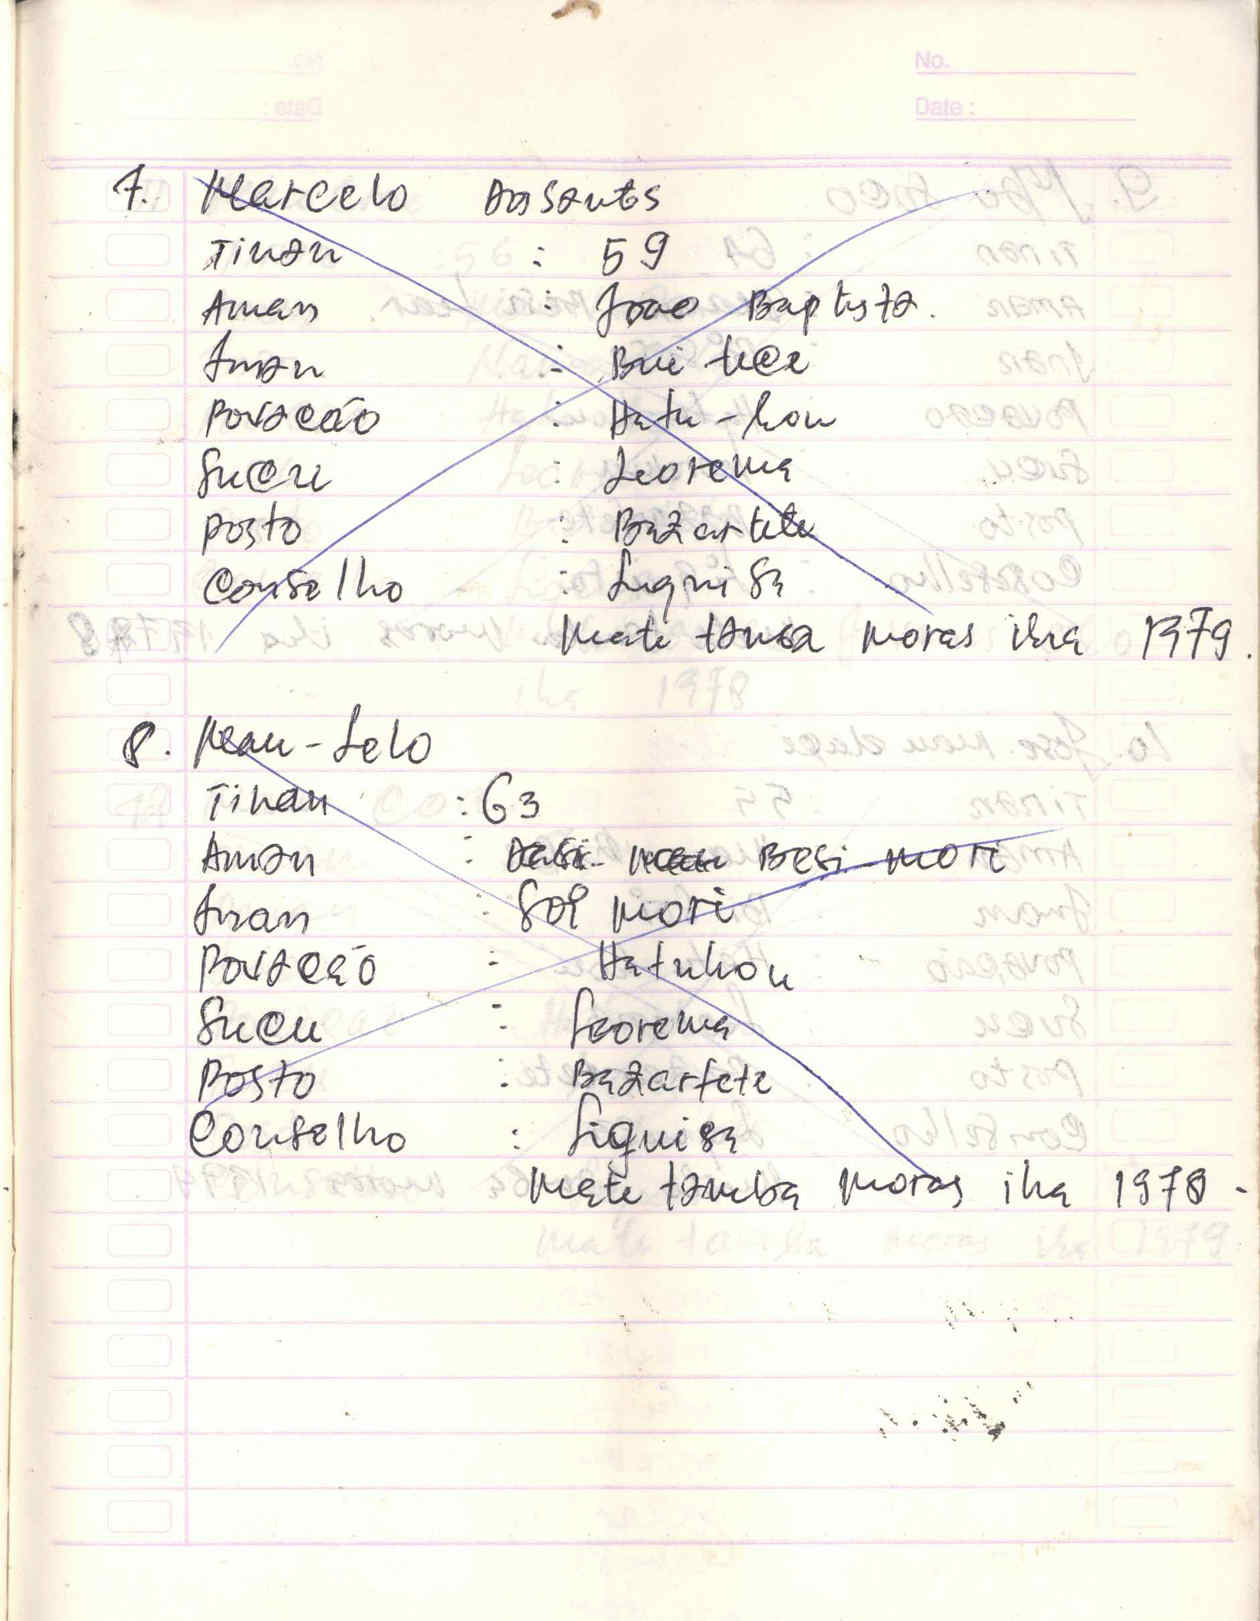 No.
Date :
7. Marcelo Dos Santos
Tinan : 59
Aman : Joao Baptista.
Inan : Bui
Povacão : Hatu-hou
Sucu : Leorema
Posto : Bazartete
Conselho : Liquisa
Mate tanba moras iha 1979.
8. Mau-Lelo
Tinan : 63
Aman : Besi-mori
Inan : Soi mori
Povacão : Hatuhou
Sucu : Leorema
Posto : Bazartete
Conselho : Liquisa
Mate tamba moras iha 1978 -